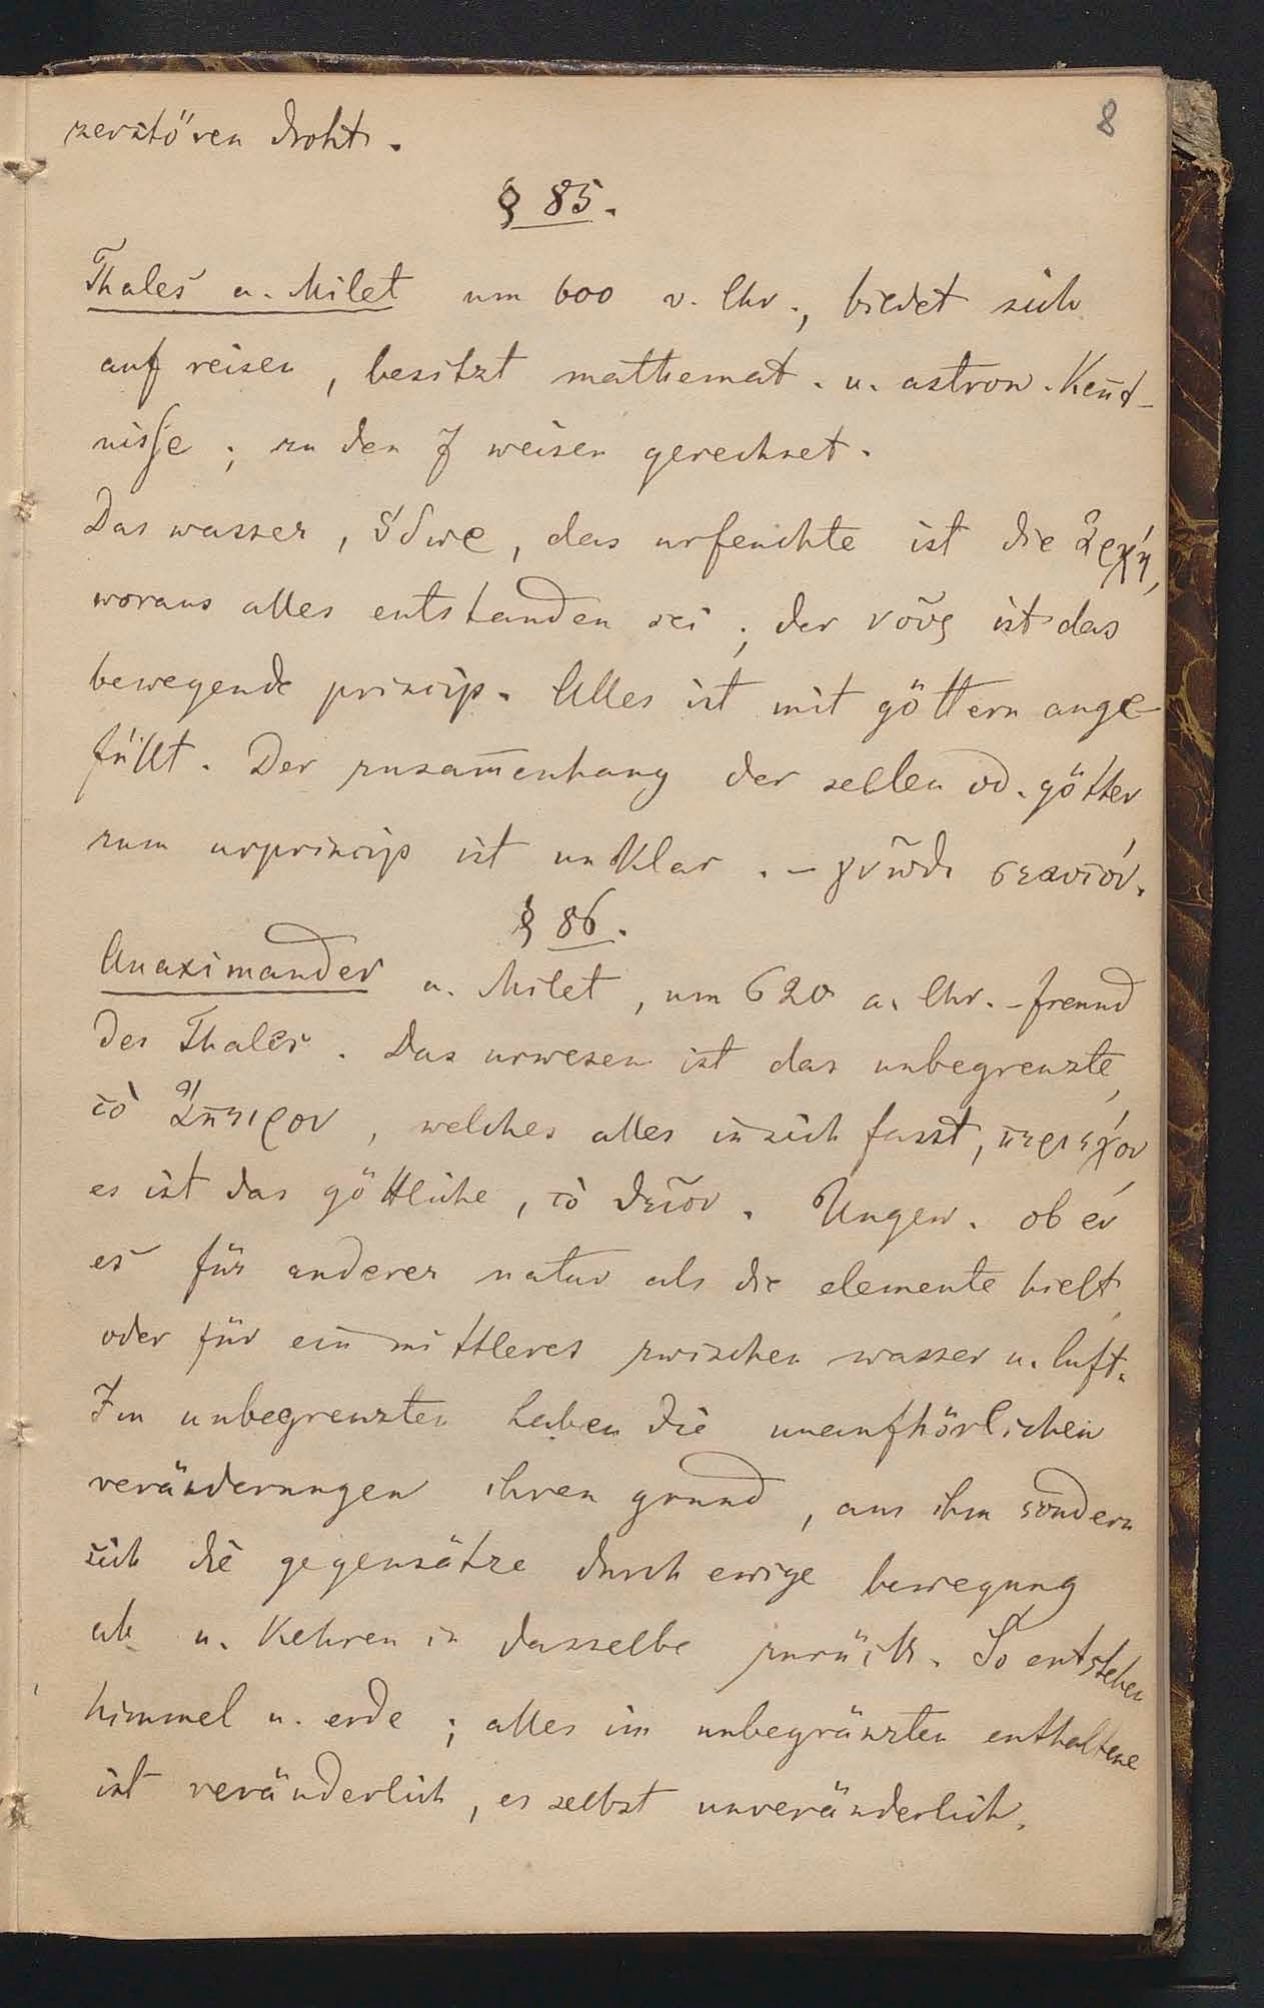 8
zerstören droht.
§ 85.
Thales a. Milet um 600 v. Chr., bildet sich
auf reisen, besitzt mathemat. u. astron. Ken̄t-
nisse; zu den 7 weisen gerechnet.
Das wasser, ὕδωρ, das urfeuchte ist die ἀρχή,
woraus alles entstanden sei; der νοῦς ist das
bewegende princip. Alles ist mit göttern ange-
füllt. Der zusam̄enhang der seelen od. götter
zum urprincip ist unklar. – γνῶθι σεαυτόν.
§ 86.
Anaximander a. Milet, um 620 a. Chr. – freund
des Thales. Das urwesen ist das unbegrenzte,
τὸ ἄπειρον, welches alles in sich fasst, περιέχον
es ist das göttliche, τὸ θεῖον. Ungew. ob er
es für anderer natur als die elemente hielt,
oder für ein mittleres zwischen wasser u. luft.
Im unbegrenzten haben die unaufhörlichen
veränderungen ihren grund, aus ihm sondern
sich die gegensätze durch ewige bewegung
ab u. kehren in dasselbe zurück. So entstehen
himmel u. erde; alles im unbegränzten enthaltene
ist veränderlich, es selbst unveränderlich.